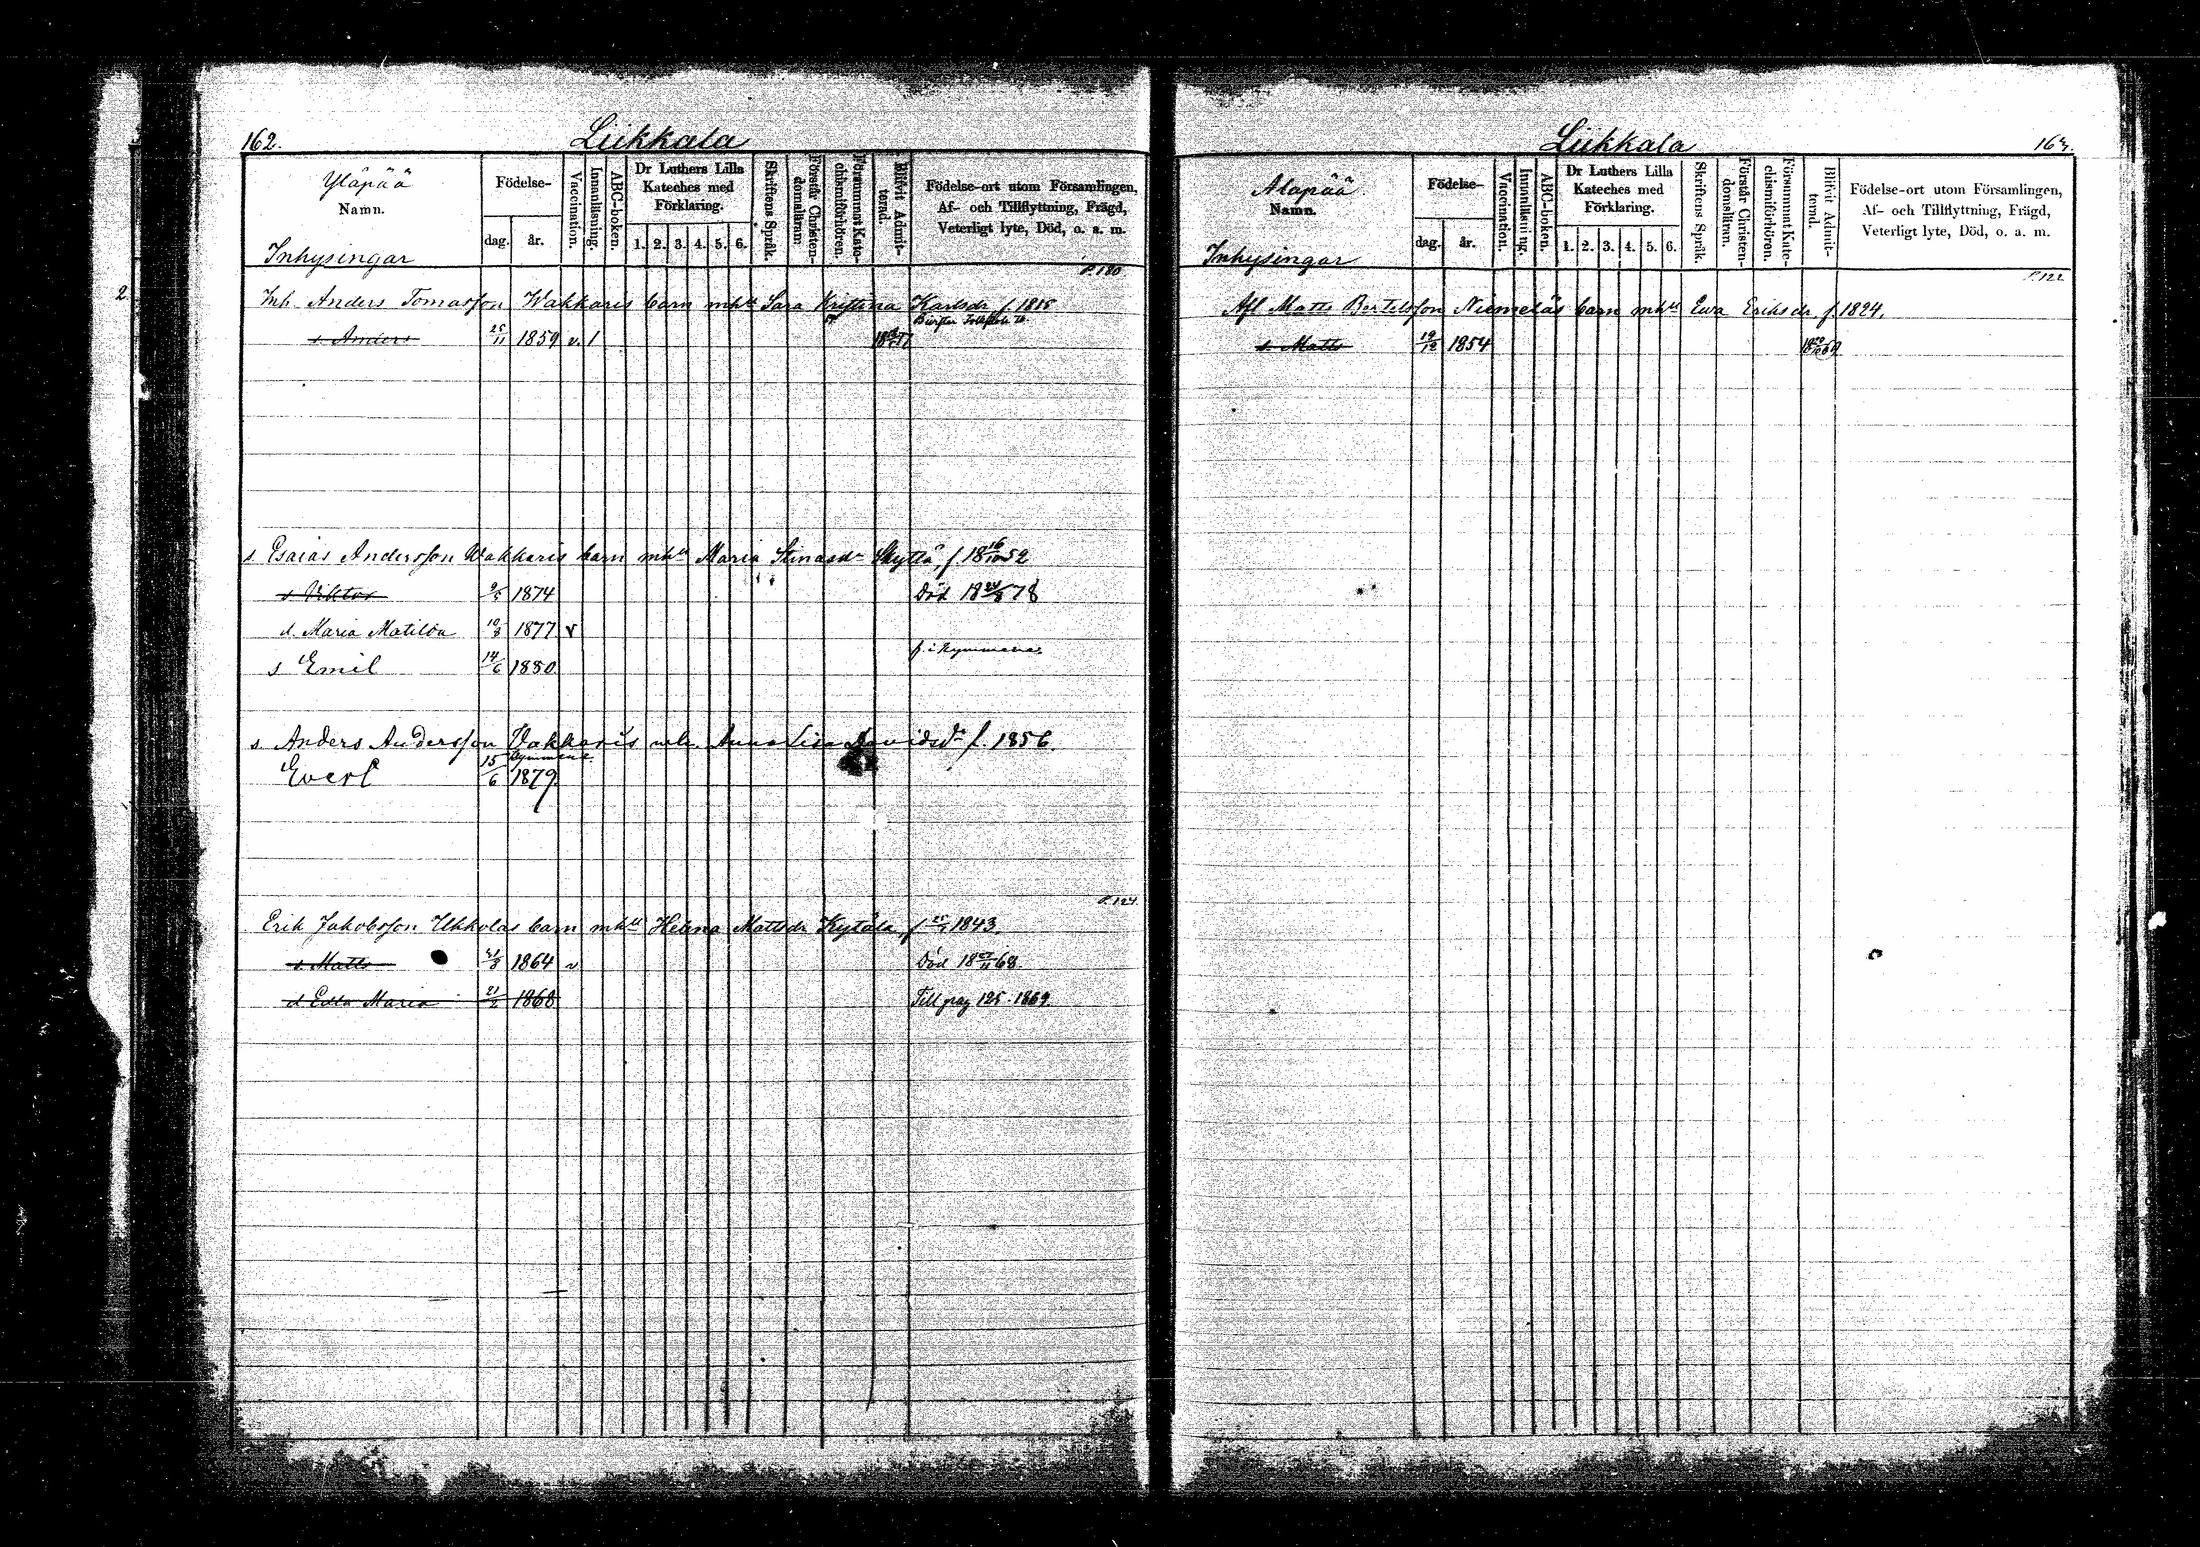 162.
Liikkala
Yläpää
Namn.
Inhysingar
Födelse-
dag. år.
Vaccination.
Innanläsning.
ABC-boken.
Dr Luthers Lilla
Kateches med
Förklaring.
1. 2. 3. 4. 5. 6.
Skriftens Språk.
Förstår Christen-
domsläran.
Försummat Kate-
chismiförhören.
Blifvit Admit-
terad.
Födelse-ort utom Församlingen,
Af- och Tillflyttning, Frägd,
Veterligt lyte, Död, o. a. m.
P. 120
Inh. Anders Tomasson Wakkaris barn mhu Sara Kristina Karlsdr f. 1815
s. Anders 25/11 1859 v. 1
s. Esaias Andersson Wakkaris barn mhu Maria Stinasdr Skyttä, f 18 16/10 52
s Viktor 9/5 1874 Död 18 24/8 78
d. Maria Matilda 10/8 1877 v
f. i Kymmene
s Emil 14/6 1880
s. Anders Andersson Vakkaris Anna Lisa Davidsdr f. 1856.
Kymmene
Evert 15/6 1879
P. 124.
Erik Jakobsson Ukkolas barn mhu Helena Mattsdr Kytälä, f 1843.
s. Matts 1864 v Död 18 27/11 68.
d Edla Maria 21/2 1868 Till pag 125 - 1869.
Liikkala
163.
Alapää
Namn.
Inhysingar
Födelse-
dag. år.
Vaccination.
Innanläsning.
ABC-boken.
Dr Luthers Lilla
Kateches med
Förklaring.
1. 2. 3. 4. 5. 6.
Skriftens Språk.
Förstår Christen-
domsläran.
Försummat Kate-
chismiförhören.
Blifvit Admit-
terad.
Födelse-ort utom Församlingen,
Af- och Tillflyttning, Frägd,
Veterligt lyte, Död, o. a. m.
P. 122
Afl Matts Bertelsson Niemeläs barn mhu Ewa Eriksdr f. 1824.
s. Matts 19/12 1854 18 20/10 69